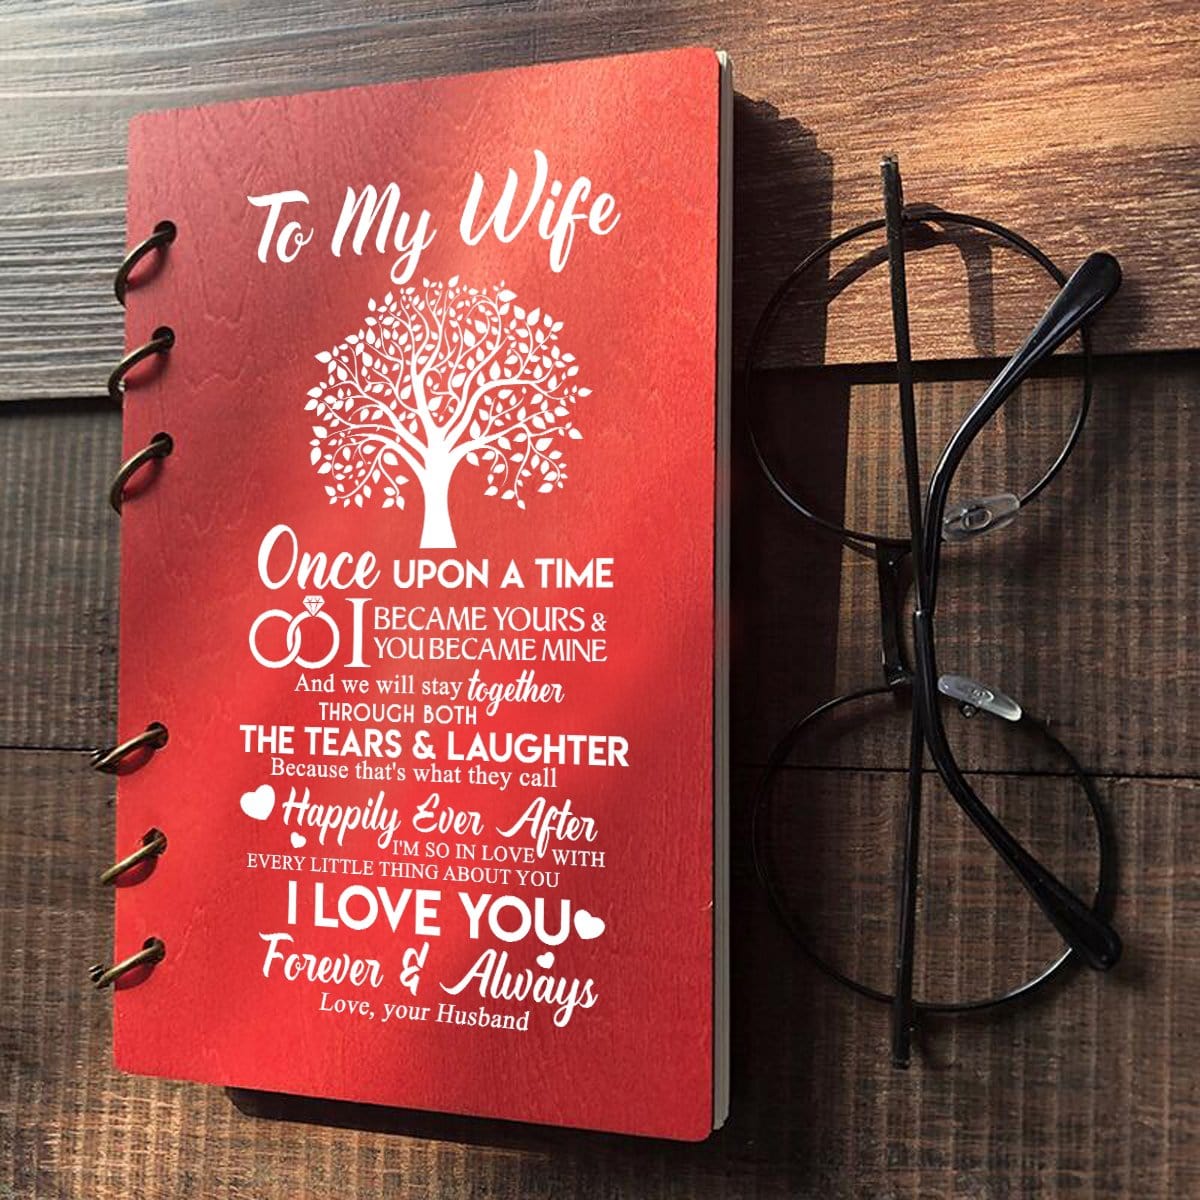 To My Wife
Once UPON A TIME
I BECAME YOURS &
YOU BECAME MINE
And we will stay together
THROUGH BOTH
THE TEARS & LAUGHTER
Because that's what they call
Happily Ever After
I'M SO IN LOVE WITH
EVERY LITTLE THING ABOUT YOU
I LOVE YOU
Forever & Always
Love, your Husband